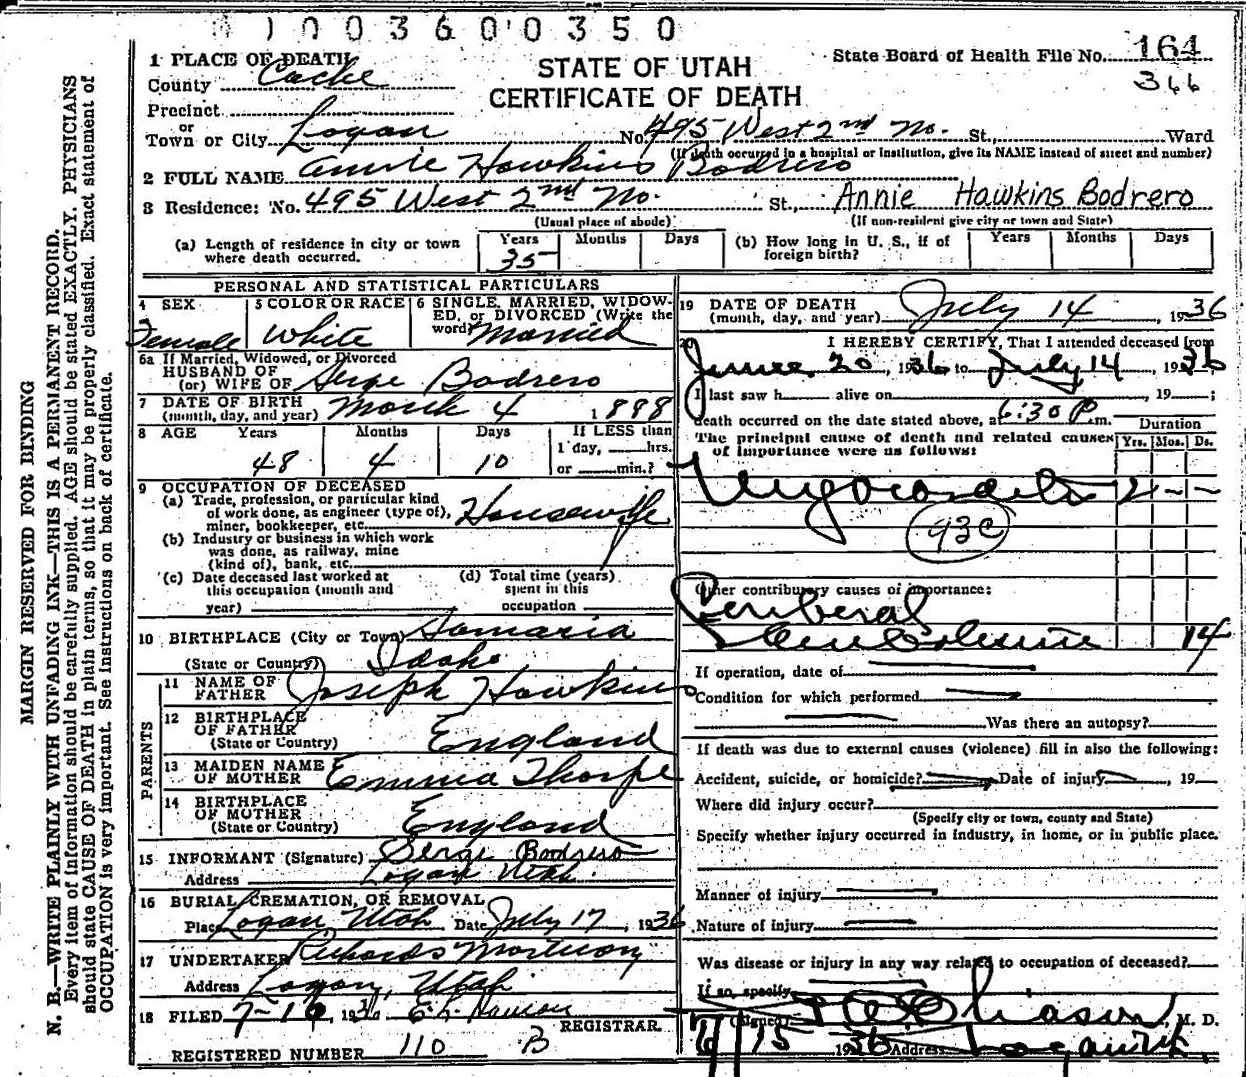 1003600350
1 PLACE OF DEATH
County Cache
Precinct
or
Town or City Logan No. 495 West 2nd No. St. Ward
STATE OF UTAH
CERTIFICATE OF DEATH
State Board of Health File No. 164
366
(If death occurred in a hospital or institution, give its NAME instead of street and number)
2 FULL NAME Annie Hawkins Bodrero
3 Residence: No. 495 West 2nd No. St., Annie Hawkins Bodrero
(Usual place of abode) (If non-resident give city or town and State)
(a) Length of residence in city or town where death occurred. Years 35 Months Days
(b) How long in U. S., if of foreign birth? Years Months Days
PERSONAL AND STATISTICAL PARTICULARS
4 SEX Female
5 COLOR OR RACE White
6 SINGLE, MARRIED, WIDOWED, or DIVORCED (Write the word) Married
6a If Married, Widowed, or Divorced
HUSBAND OF
(or) WIFE OF Serge Bodrero
7 DATE OF BIRTH
(month, day, and year) March 4 1888
8 AGE Years 48 Months 4 Days 10 If LESS than 1 day, hrs. or min.?
9 OCCUPATION OF DECEASED
(a) Trade, profession, or particular kind of work done, as engineer (type of), miner, bookkeeper, etc. Housewife
(b) Industry or business in which work was done, as railway, mine (kind of), bank, etc.
(c) Date deceased last worked at this occupation (month and year)
(d) Total time (years) spent in this occupation
10 BIRTHPLACE (City or Town) Samaria
(State or Country) Idaho
PARENTS
11 NAME OF FATHER Joseph Hawkins
12 BIRTHPLACE OF FATHER
(State or Country) England
13 MAIDEN NAME OF MOTHER Emma Thorpe
14 BIRTHPLACE OF MOTHER
(State or Country) England
15 INFORMANT (Signature) Serge Bodrero
Address Logan Utah.
16 BURIAL, CREMATION, OR REMOVAL
Place Logan, Utah Date July 17, 1936
17 UNDERTAKER Richards Mortuary
Address Logan, Utah
18 FILED 7-16, 1936 REGISTRAR
REGISTERED NUMBER 110 B
19 DATE OF DEATH
(month, day, and year) July 14, 1936
20 I HEREBY CERTIFY, That I attended deceased from
June 20, 1936 to July 14, 1936
I last saw h alive on , 19 ;
death occurred on the date stated above, at 6:30 P.m.
The principal cause of death and related causes of importance were as follows:
Duration
Yrs. Mos. Ds.
Myocarditis 2 - -
93c
Other contributory causes of importance:
Cerebral
Embolism 14
If operation, date of
Condition for which performed
Was there an autopsy?
If death was due to external causes (violence) fill in also the following:
Accident, suicide, or homicide? Date of injury , 19
Where did injury occur?
(Specify city or town, county and State)
Specify whether injury occurred in industry, in home, or in public place.
Manner of injury
Nature of injury
Was disease or injury in any way related to occupation of deceased?
If so, specify
(Signed) M. D.
7/15 1936 Address Logan Ut.
MARGIN RESERVED FOR BINDING
N. B.—WRITE PLAINLY WITH UNFADING INK—THIS IS A PERMANENT RECORD.
Every item of information should be carefully supplied. AGE should be stated EXACTLY. PHYSICIANS
should state CAUSE OF DEATH in plain terms, so that it may be properly classified. Exact statement of
OCCUPATION is very important. See instructions on back of certificate.